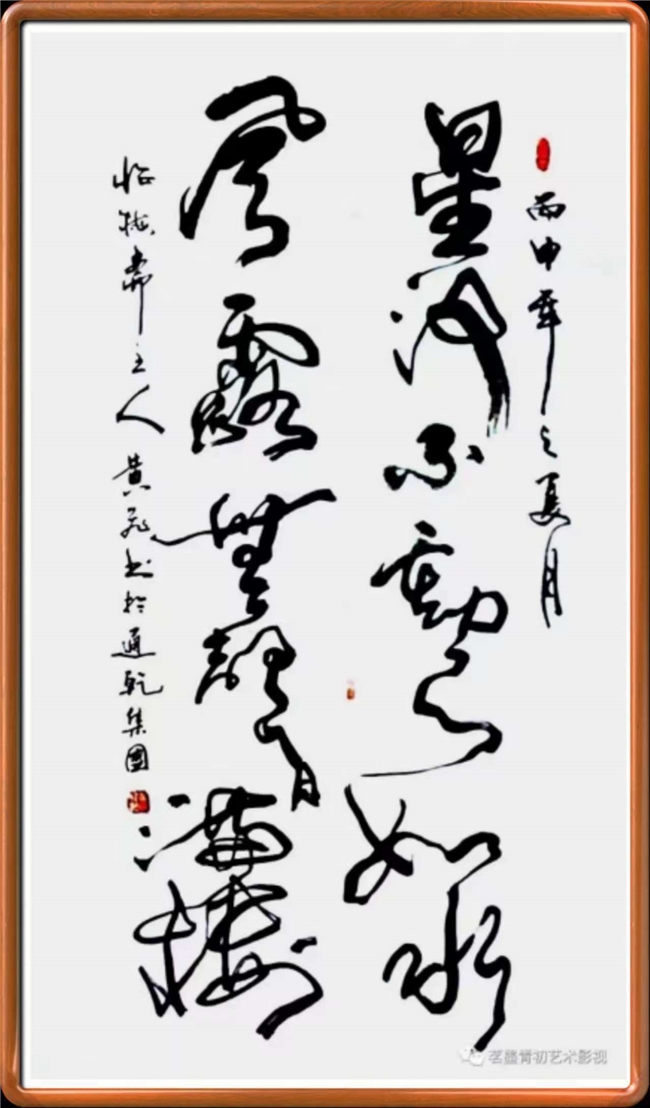 丙申年之夏月
星河不動天如水
風露無聲月滿樓
斋主人黄飞书於通乾集團
茗墨青初艺术影视